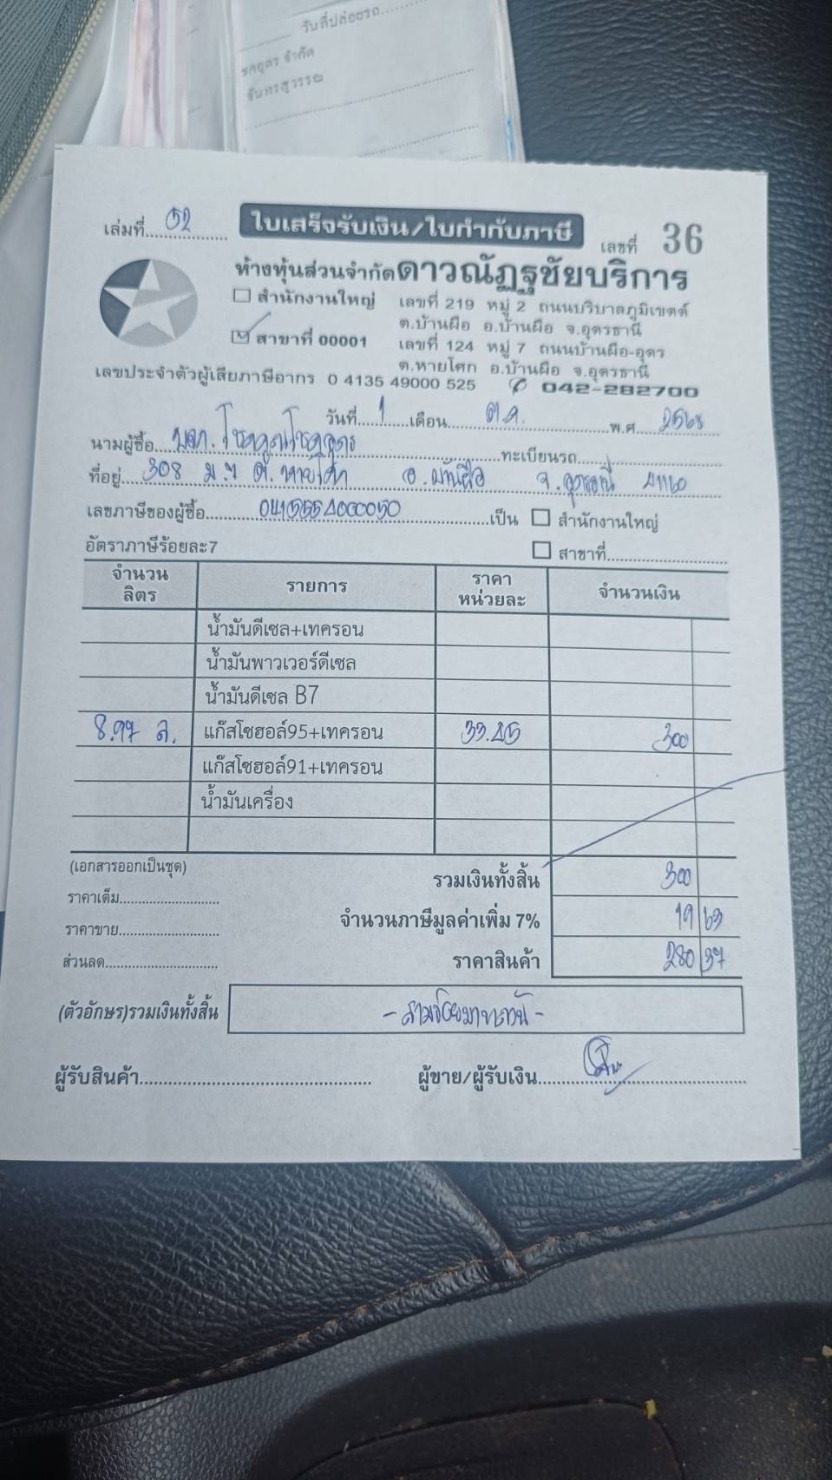 วันที่ปล่อยรถ
ชคอุดร จำกัด
จันทรสุวรรณ
เล่มที่ 52 ใบเสร็จรับเงิน/ใบกำกับภาษี เลขที่ 36
ห้างหุ้นส่วนจำกัดดาวณัฏฐชัยบริการ
สำนักงานใหญ่ เลขที่ 219 หมู่ 2 ถนนบริบาลภูมิเขตต์
ต.บ้านผือ อ.บ้านผือ จ.อุดรธานี
สาขาที่ 00001 เลขที่ 124 หมู่ 7 ถนนบ้านผือ-อุดร
ต.หายโศก อ.บ้านผือ จ.อุดรธานี
เลขประจำตัวผู้เสียภาษีอากร 0 4135 49000 525 042-282700
วันที่ 1 เดือน ต.ค. พ.ศ. 2568
นามผู้ซื้อ ทะเบียนรถ
ที่อยู่ 308 ม.7 ต.หายโศก อ.บ้านผือ จ.อุดรธานี 41160
เลขภาษีของผู้ซื้อ เป็น สำนักงานใหญ่
อัตราภาษีร้อยละ7 สาขาที่
จำนวน ลิตร รายการ ราคา หน่วยละ จำนวนเงิน
น้ำมันดีเซล+เทครอน
น้ำมันพาวเวอร์ดีเซล
น้ำมันดีเซล B7
8.97 ล. แก๊สโซฮอล์95+เทครอน 33.45 300
แก๊สโซฮอล์91+เทครอน
น้ำมันเครื่อง
(เอกสารออกเป็นชุด) รวมเงินทั้งสิ้น 300
ราคาเต็ม จำนวนภาษีมูลค่าเพิ่ม 7% 19 63
ราคาขาย
ส่วนลด ราคาสินค้า 280 37
(ตัวอักษร)รวมเงินทั้งสิ้น -สามร้อยบาทถ้วน-
ผู้รับสินค้า ผู้ขาย/ผู้รับเงิน